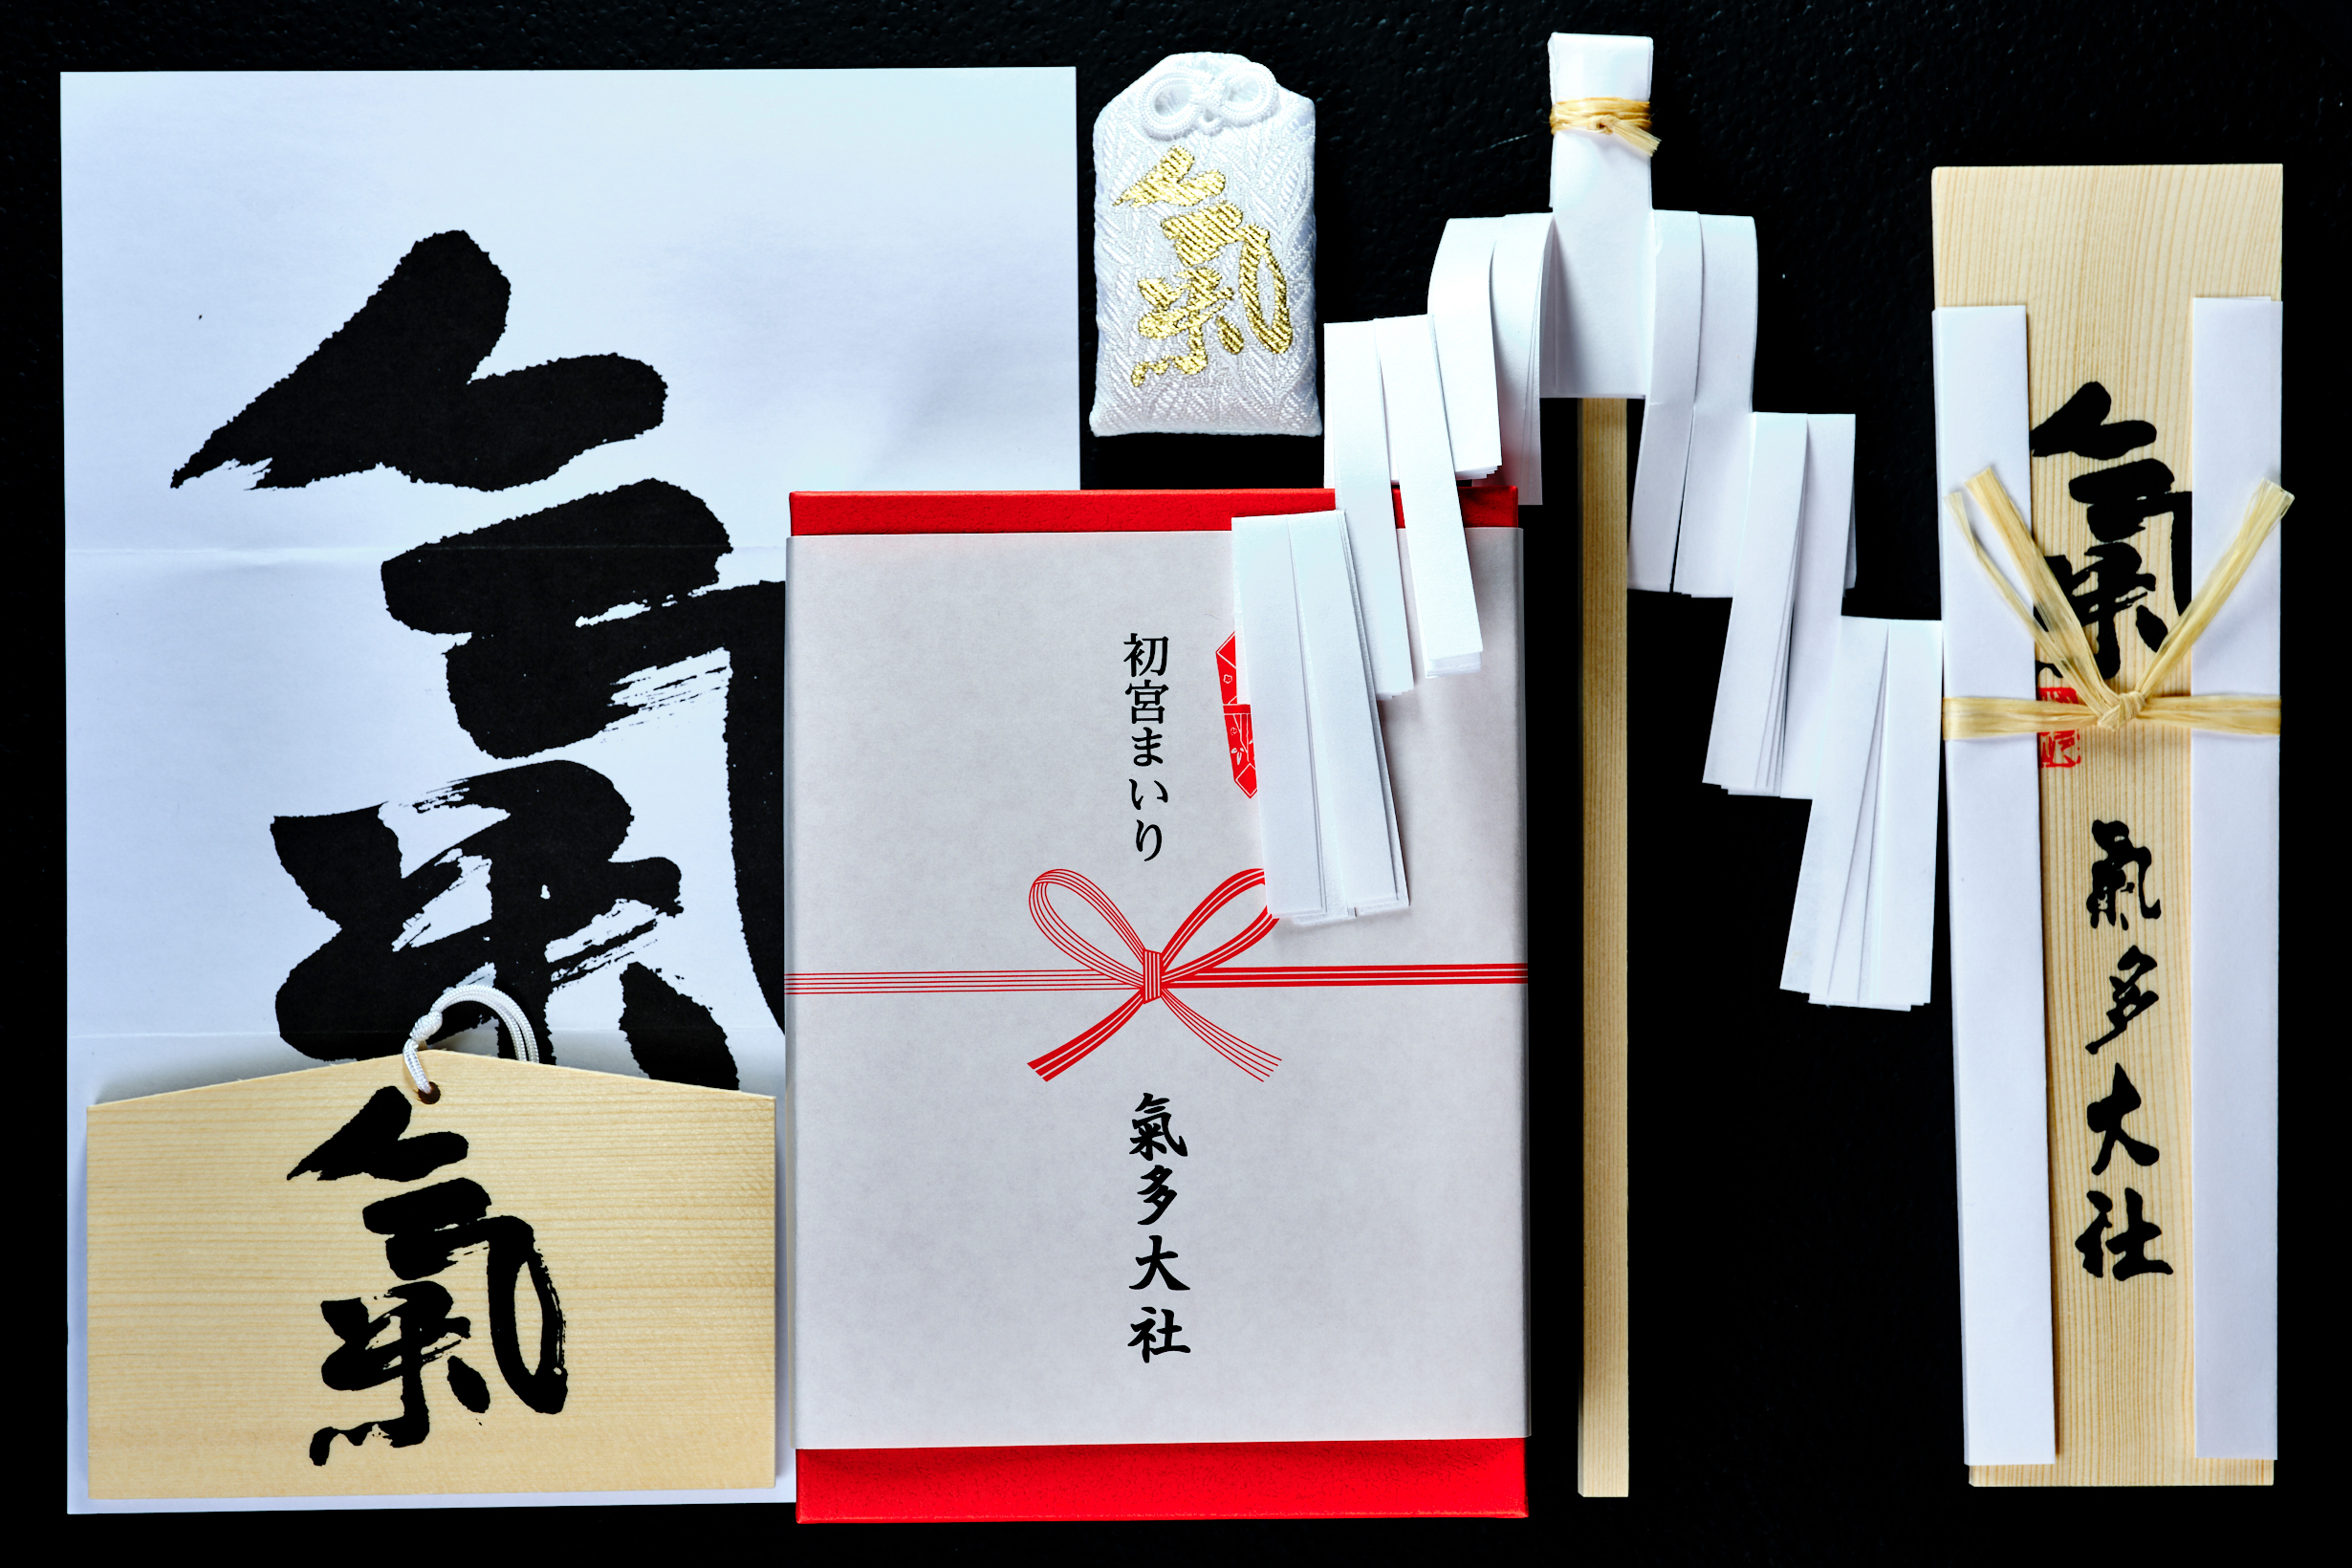 氣
氣
氣
初宮まいり
氣多大社
氣
氣多大社